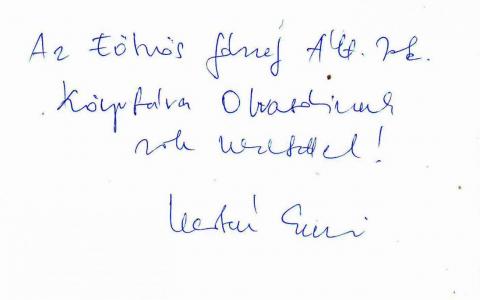 Az Eötvös József Ált. Isk.
Könyvtára Olvasóinak
sok szeretettel!